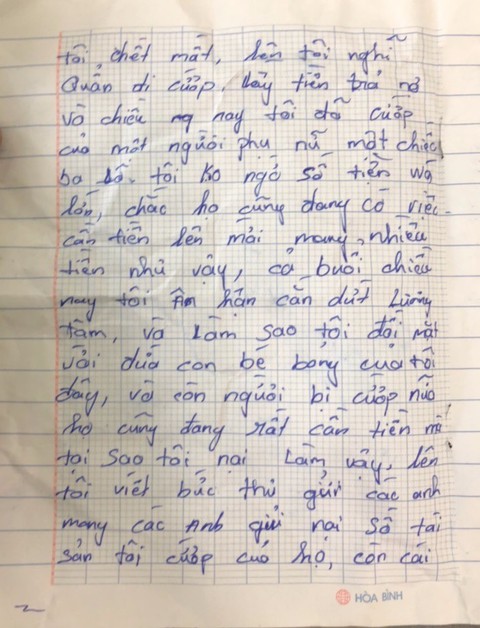 tôi chết mất, lên tôi nghĩ
Quẩn di cướp, lấy tiền trả nợ
và chiều ng nay tôi đã cướp
của một người phụ nữ một chiếc
ba lô. tôi ko ngờ số tiền wá
lớn, chắc họ cũng đang có việc
cần tiền lên mới mang nhiều
tiền như vậy, cả buổi chiều
nay tôi ân hận cắn dứt lương
tâm, và Làm sao tôi đối mặt
với đứa con bé bỏng của tôi
đây, và còn người bị cướp nữa
họ cũng đang rất cần tiền mà
tại sao tôi nại Làm vậy, lên
tôi viết bức thư gửi các anh
mong các Anh gửi nại số tài
sản tôi cướp của họ, còn cái
HÒA BÌNH